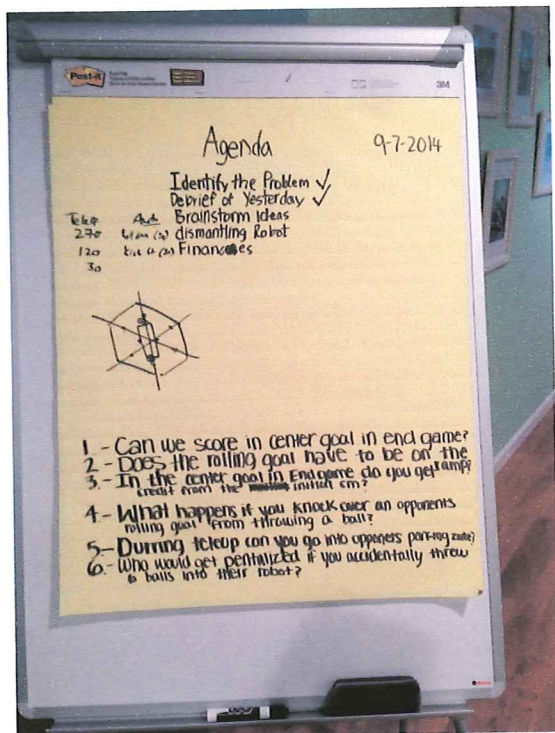 Post-it
3M
Agenda
9-7-2014
Identify the Problem ✓
Debrief of Yesterday ✓
Brainstorm Ideas
dismantling Robot
Finances
Tele
270
120
30
1 - Can we score in center goal in end game?
2 - Does the rolling goal have to be on the ramp?
3. - In the center goal in End game do you get
credit from the initial cm?
4. - What happens if you knock over an opponents
rolling goal from throwing a ball?
5 - Durring teleup can you go into opponers parking zone?
6. - Who would get pentalized if you accidentally threw
a balls into their robot?